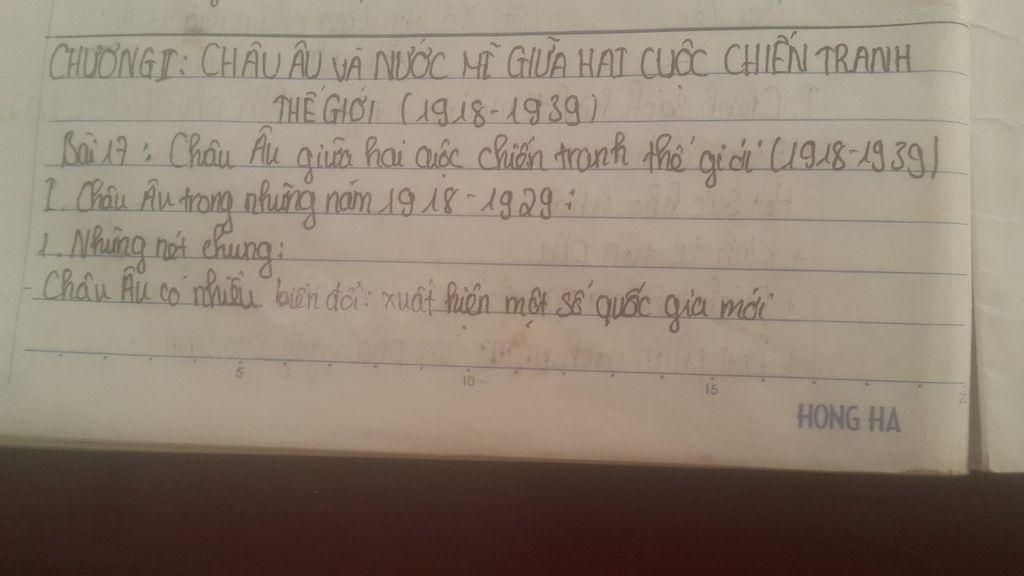 CHƯƠNG I: CHÂU ÂU VÀ NƯỚC MĨ GIỮA HAI CUỘC CHIẾN TRANH
THẾ GIỚI (1918-1939)
Bài 17: Châu Âu giữa hai cuộc chiến tranh thế giới (1918-1939)
I. Châu Âu trong những năm 1918-1929:
1. Những nét chung:
- Châu Âu có nhiều biến đổi: xuất hiện một số quốc gia mới
5 10 15 20
HONG HA